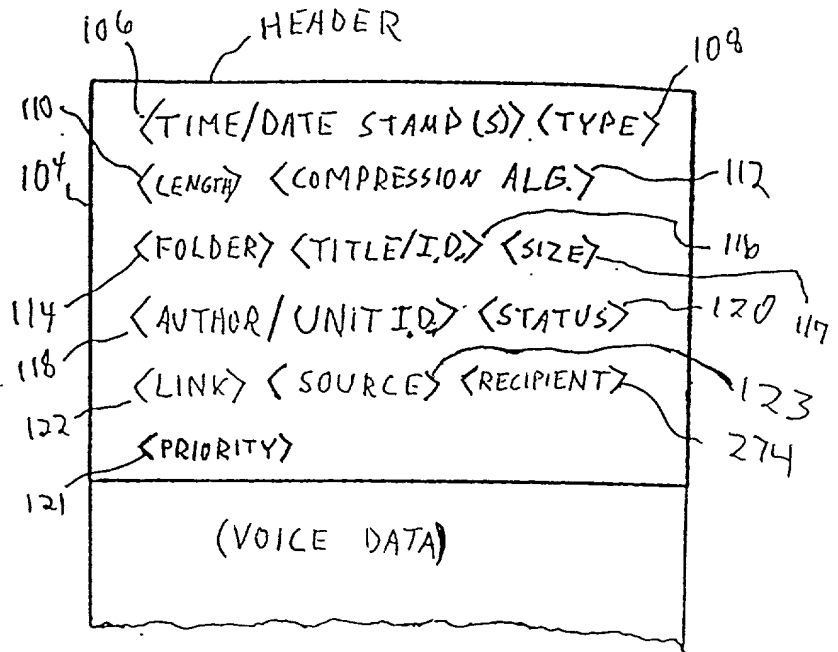 106 HEADER 108
110 <TIME/DATE STAMP(S)> <TYPE>
104 <LENGTH> <COMPRESSION ALG.> 112
<FOLDER> <TITLE/I.D.> <SIZE> 116
114 <AUTHOR/UNIT I.D.> <STATUS> 120 117
118
<LINK> <SOURCE> <RECIPIENT> 123
122 274
<PRIORITY>
121
(VOICE DATA)